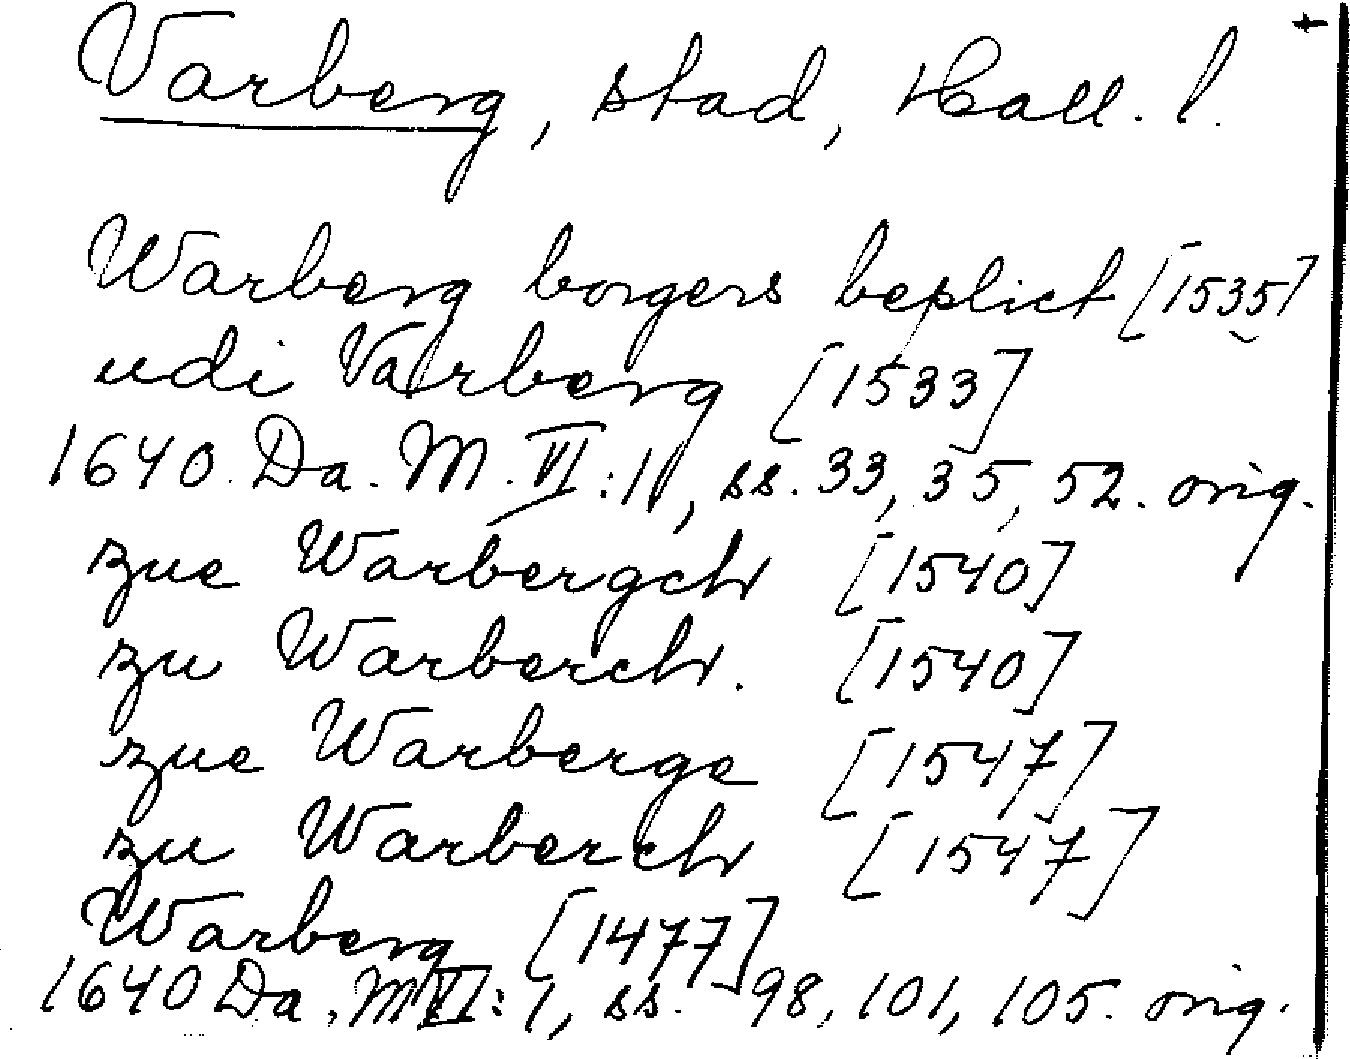 Varberg, stad, Hall. l.
Warberg borgers beplict [1535]
udi Varberg [1533]
1640. Da. M. VI:1, ss. 33, 35, 52. orig.
zue Warbergch [1540]
zu Warberch. [1540]
zue Warberge [1547]
zu Warberch [1547]
Warberg [1477]
1640 Da. M VI: 1, ss. 98, 101, 105. orig.